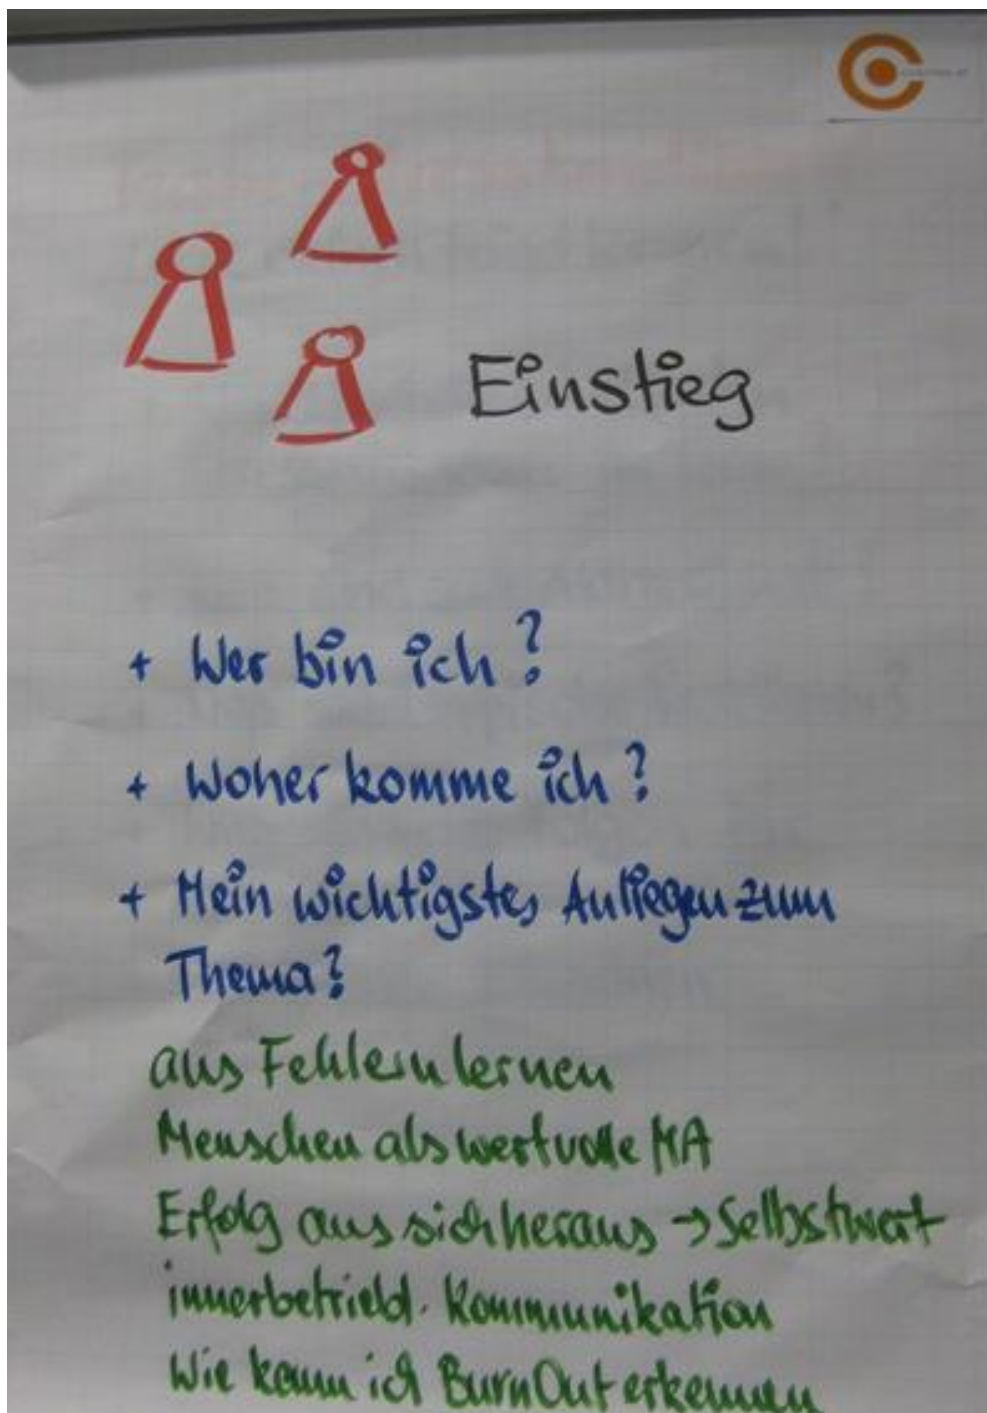 Einstieg
+ Wer bin ich?
+ Woher komme ich?
+ Mein wichtigstes Anliegen zum
Thema?
aus Fehlern lernen
Menschen als wertvolle MA
Erfolg aus sich heraus → Selbstwert
innerbetriebl. Kommunikation
Wie kann ich BurnOut erkennen